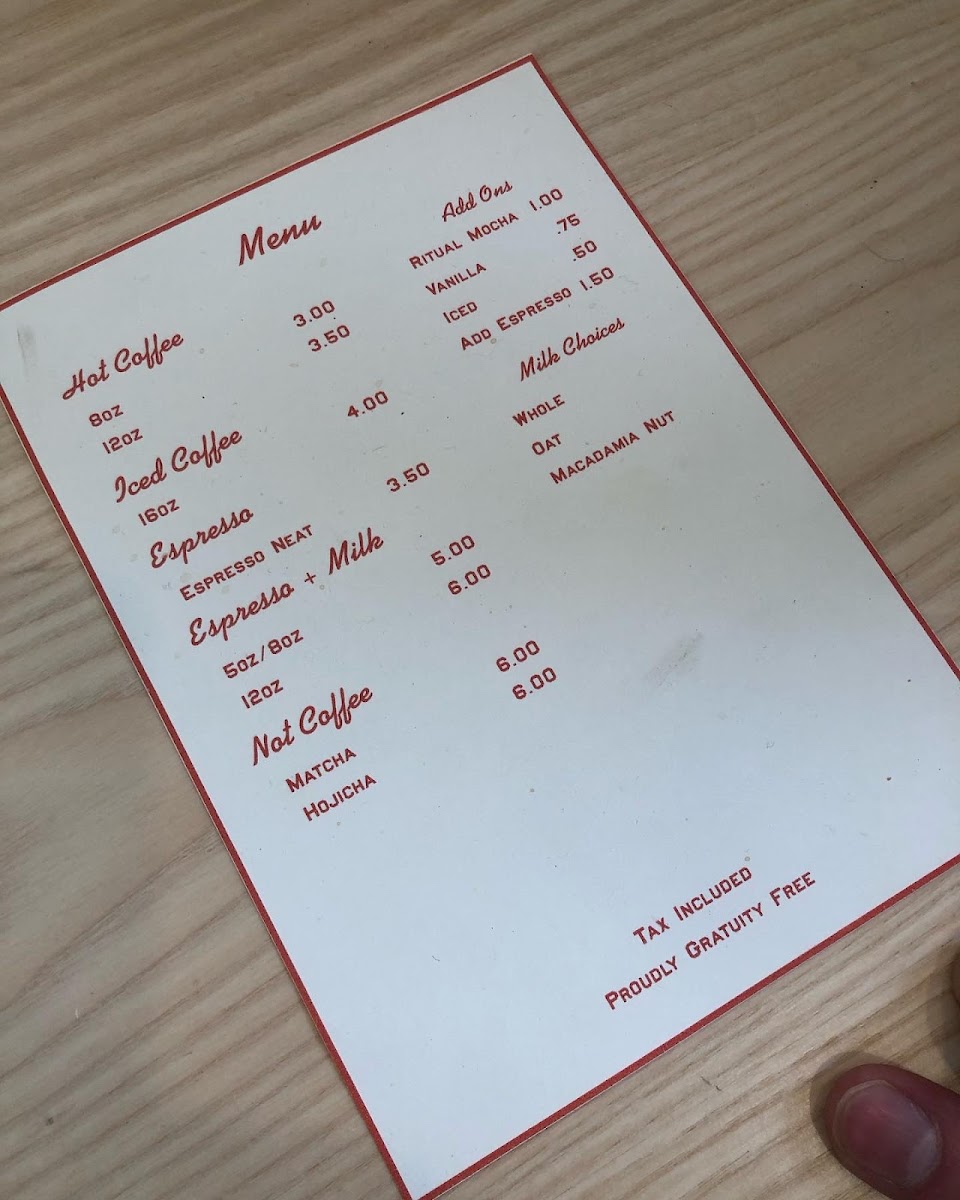 Menu
Hot Coffee
8oz 3.00
12oz 3.50
Iced Coffee
16oz 4.00
Espresso
Espresso Neat 3.50
Espresso + Milk
5oz/8oz 5.00
12oz 6.00
Not Coffee
Matcha 6.00
Hojicha 6.00
Add Ons
Ritual Mocha 1.00
Vanilla .75
Iced .50
Add Espresso 1.50
Milk Choices
Whole
Oat
Macadamia Nut
Tax Included
Proudly Gratuity Free